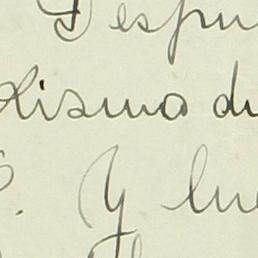 Despu
lismo du
. Y lue